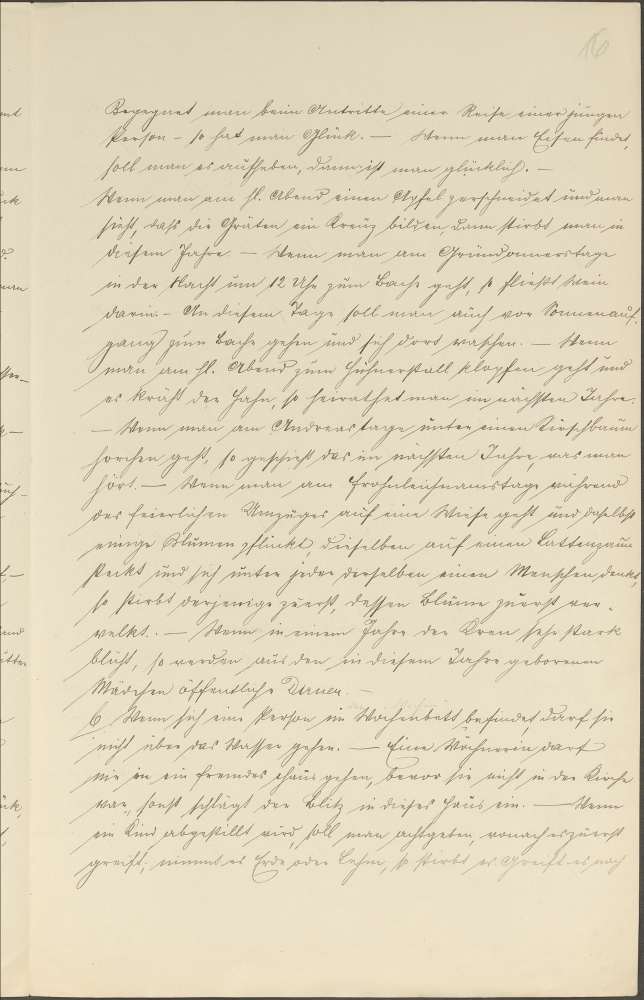 16
Begegnet man beim Antritte einer Reise einer jungen
Person – so hat man Glück. — Wenn man Eisen findet,
soll man es aufheben, dann ist man glücklich. –
Wenn man am hl. Abend einen Apfel zerschneidet und man
sieht, daß die Gräten ein Kreuz bilden, dann stirbt man in
diesem Jahre. – Wenn man am Gründonnerstage
in der Nacht um 12 Uhr zum Bache geht, so fließt Wein
darin. – An diesem Tage soll man auch vor Sonnenauf-
gang zum Bache gehen und sich dort waschen. — Wenn
man am hl. Abend zum Hühnerstall klopfen geht und
es kräht der Hahn, so heirathet man im nächsten Jahre.
– Wenn man am Andreastage unter einen Kirschbaum
horchen geht, so geschieht das im nächsten Jahre, was man
hört. — Wenn man am Frohnleichnamstage während
des feierlichen Umzuges auf eine Wiese geht und daselbst
einige Blumen pflückt, dieselben auf einen Lattenzaun
steckt und sich unter jeder derselben einen Menschen denkt,
so stirbt derjenige zuerst, dessen Blume zuerst ver-
welkt. — Wenn in einem Jahre der Kren sehr stark
blüht, so werden aus den in diesem Jahre geborenen
Mädchen öffentliche Dirnen. –
6 Wenn sich eine Person im Wochenbett befindet, darf sie
nicht über das Wasser gehen. — Eine Wöchnerin darf
nie in ein fremdes Haus gehen, bevor sie nicht in der Kirche
war, sonst schlägt der Blitz in dieses Haus ein. — Wenn
ein Kind abgestillt wird, soll man achtgeben, wonach es zuerst
greift; nimmt es Erde oder Lehm, so stirbt es. Greift es nach